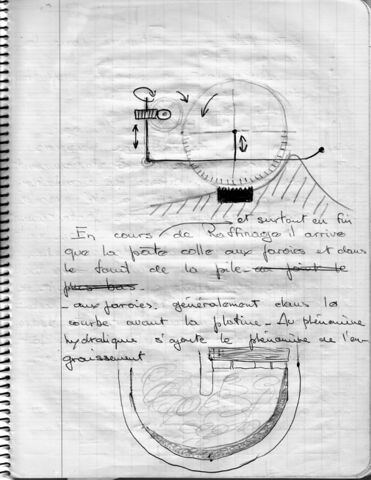 et surtout en fin
En cours de Raffinage il arrive
que la pâte colle aux paroies et dans
le fond de la pile - au point le
plus bas.
- aux paroies, généralement dans la
courbe avant la platine - Au phénomène
hydraliques s'ajoute le phénomène de l'en-
graissement